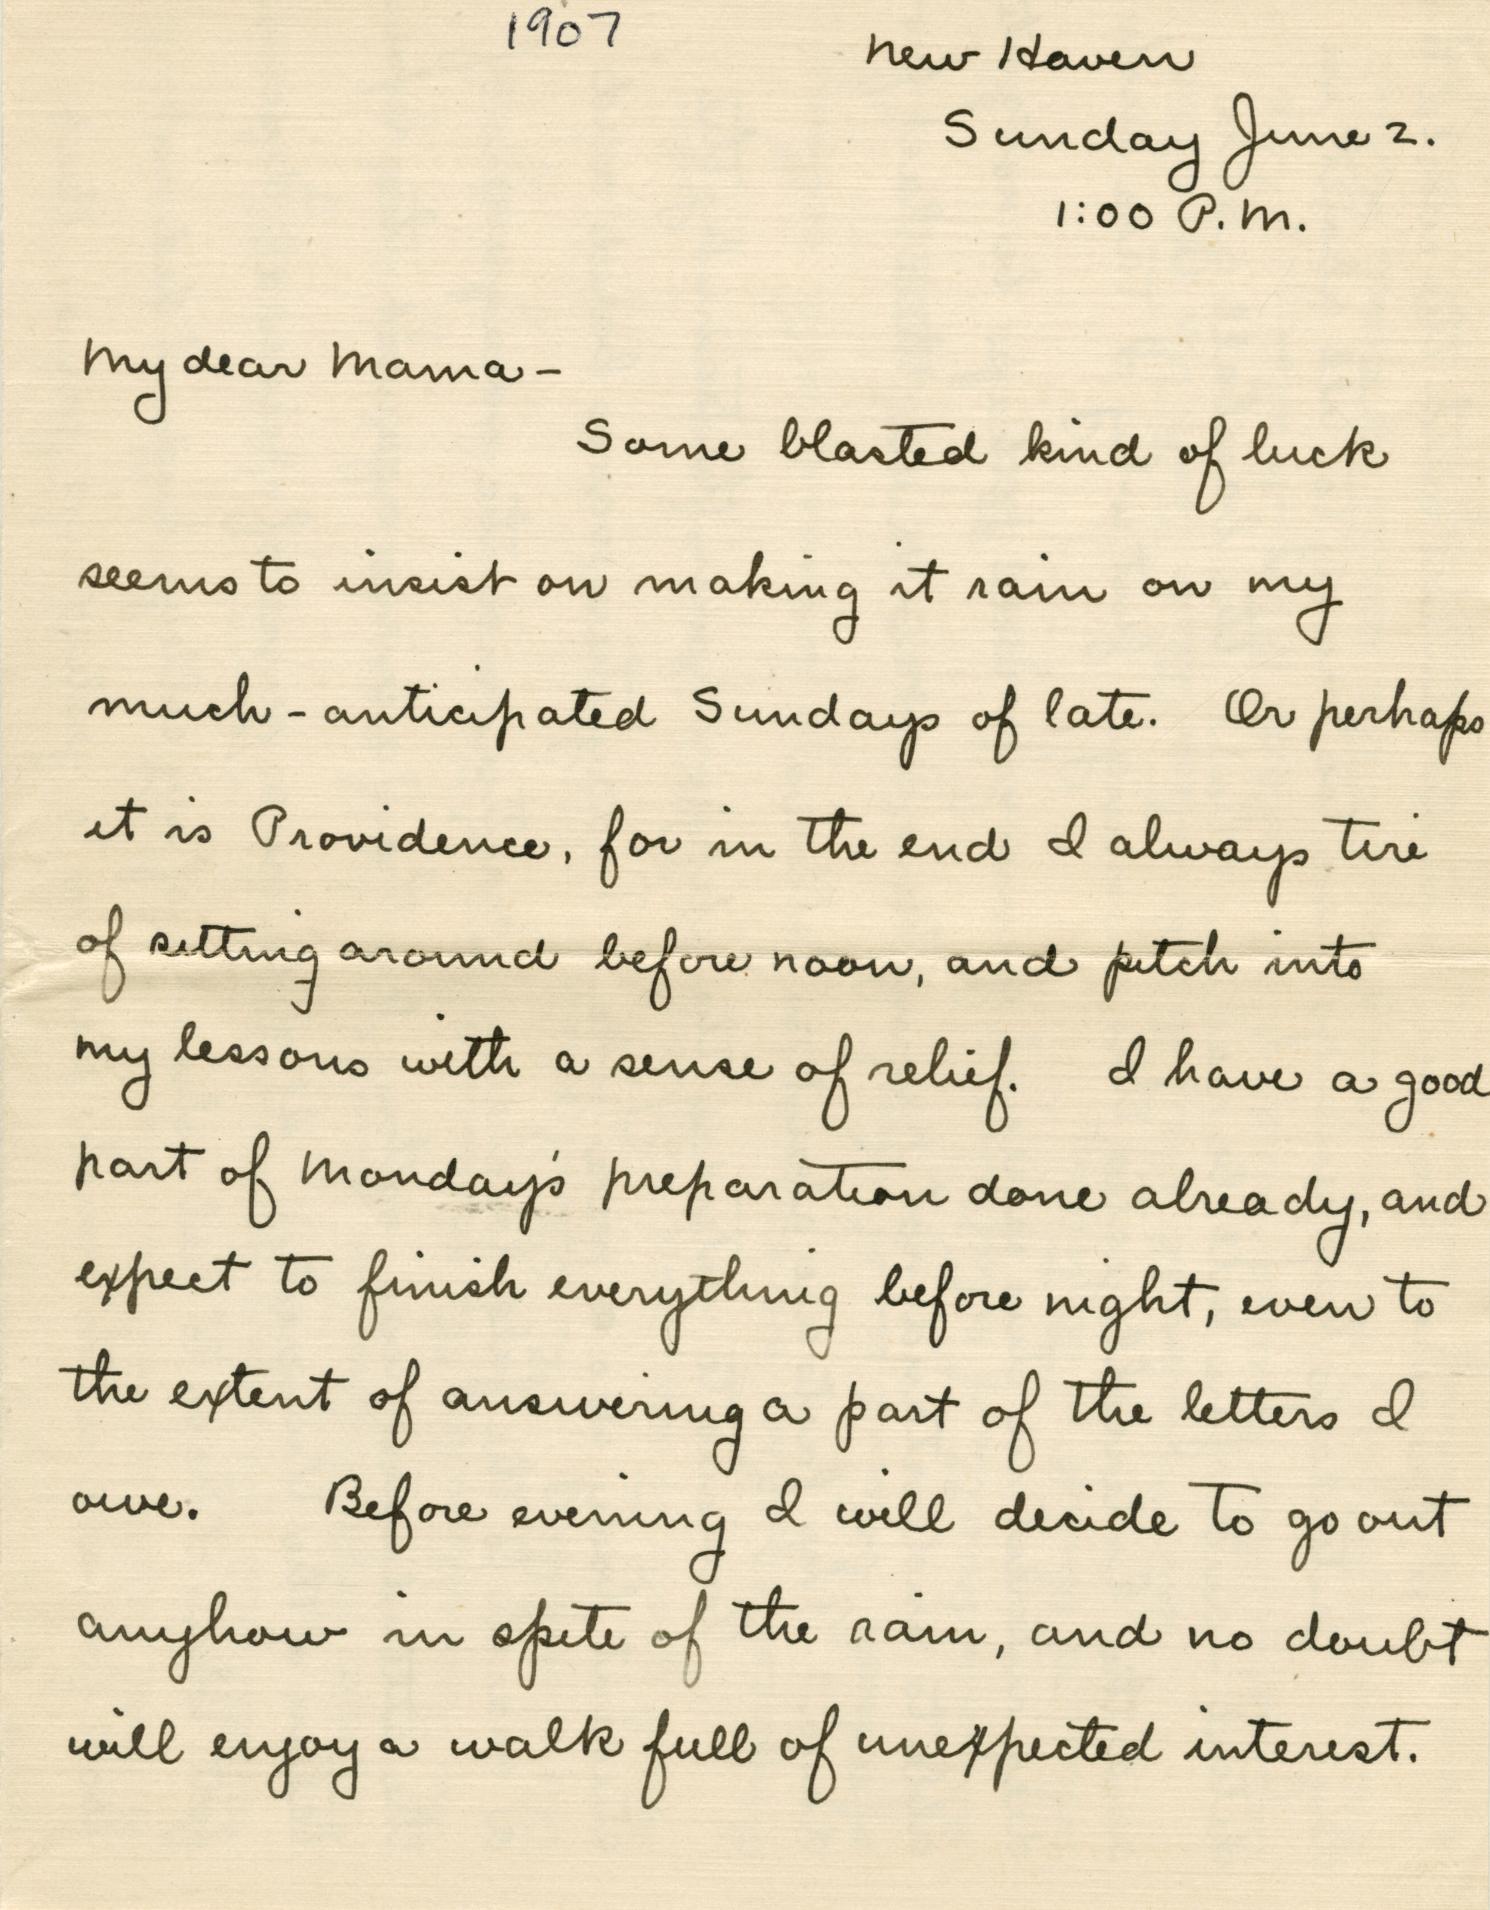 1907
New Haven
Sunday June 2.
1:00 P.M.
My dear Mama -
Some blasted kind of luck
seems to insist on making it rain on my
much-anticipated Sundays of late. Or perhaps
it is Providence, for in the end I always tire
of sitting around before noon, and pitch into
my lessons with a sense of relief. I have a good
part of Monday's preparation done already, and
expect to finish everything before night, even to
the extent of answering a part of the letters I
owe. Before evening I will decide to go out
anyhow in spite of the rain, and no doubt
will enjoy a walk full of unexpected interest.